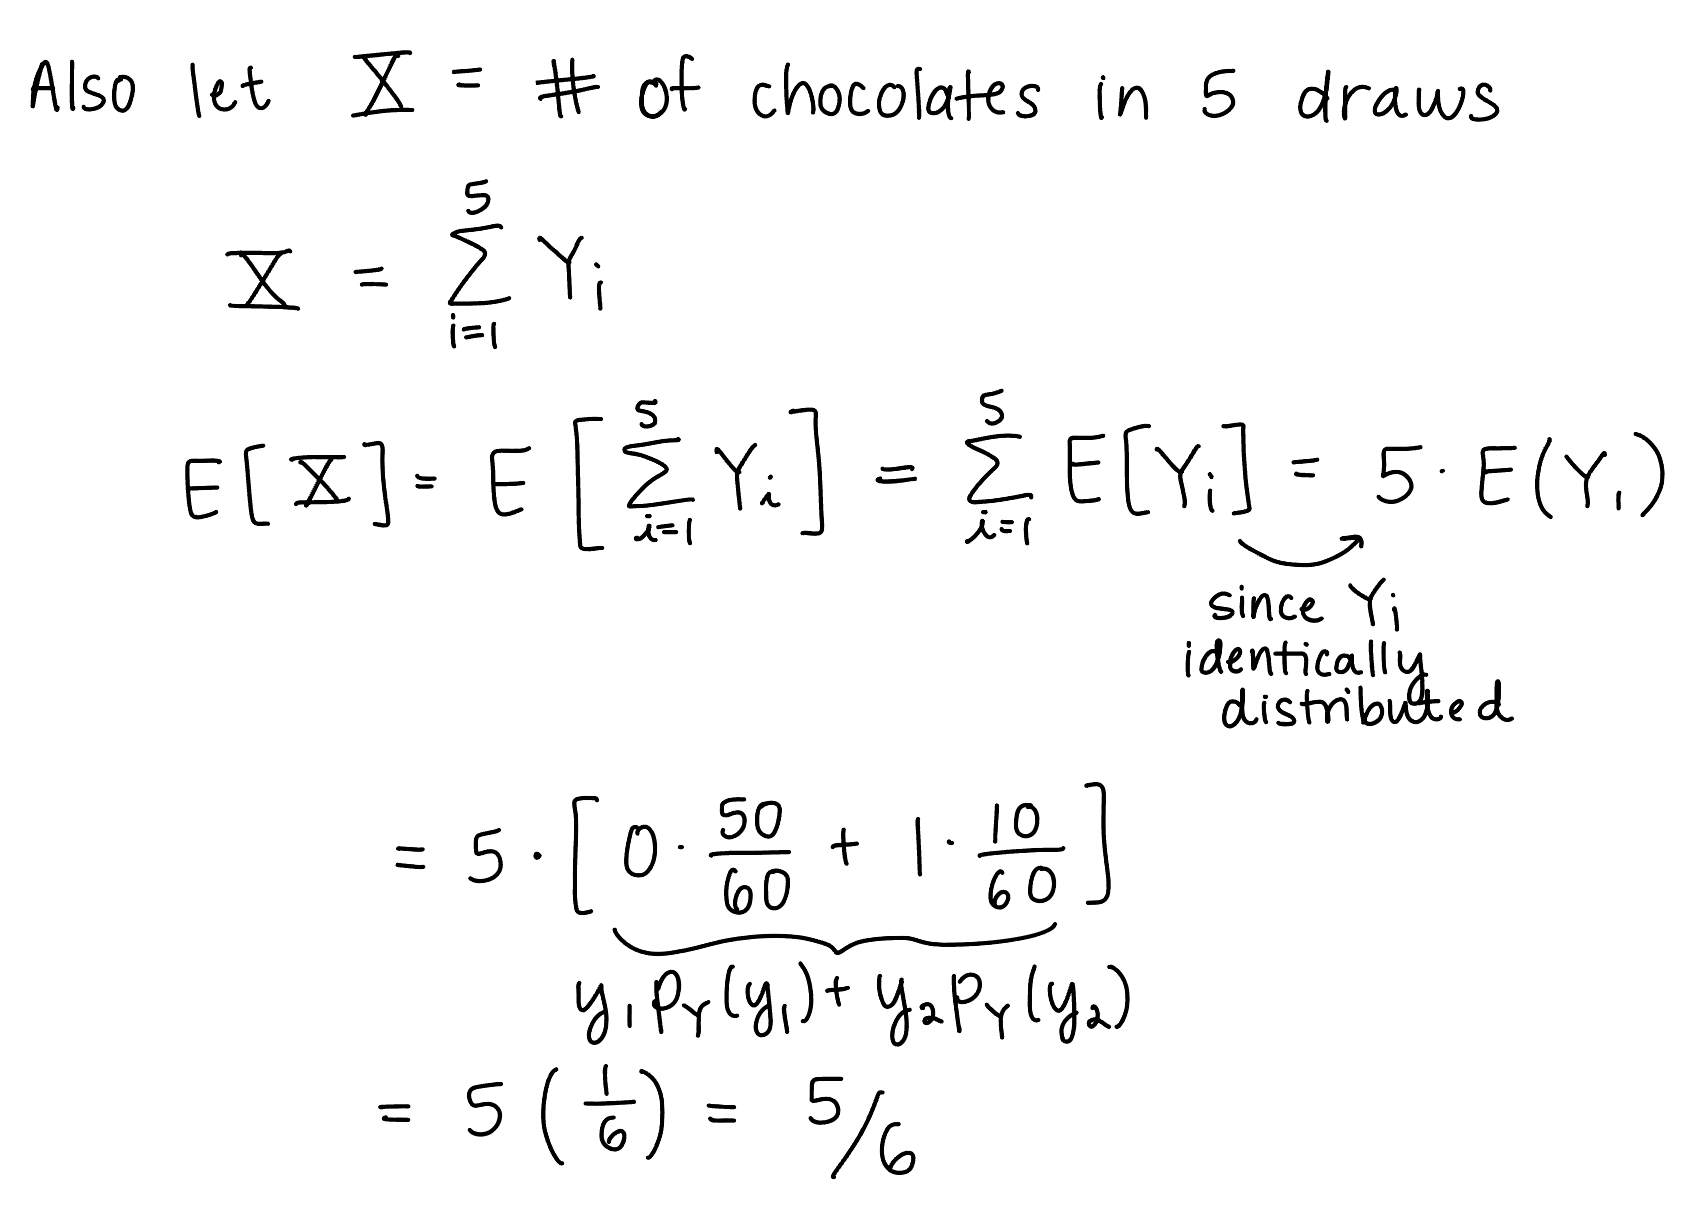 Also let X = # of chocolates in 5 draws
X = ∑_{i=1}^{5} Y_i
E[X] = E[∑_{i=1}^{5} Y_i] = ∑_{i=1}^{5} E[Y_i] = 5 · E(Y_1)
since Y_i
identically
distributed
= 5 · [0 · 50/60 + 1 · 10/60]
y_1 p_Y(y_1) + y_2 p_Y(y_2)
= 5 (1/6) = 5/6